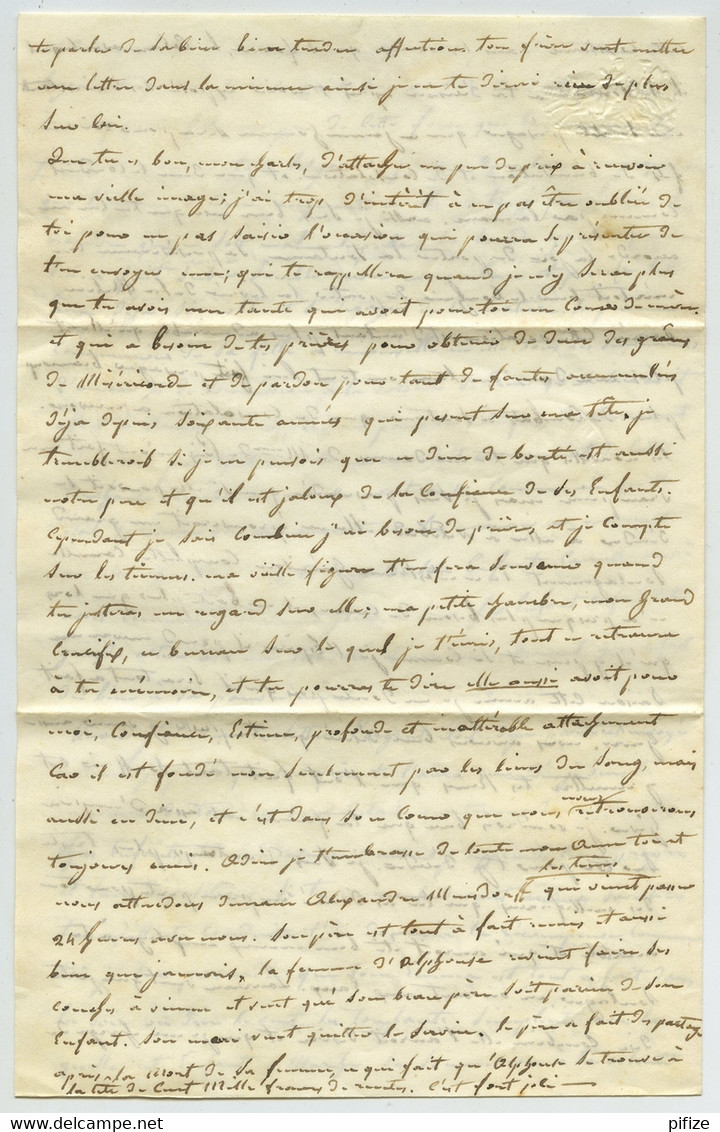 te parler de sa bien bien tendre affection. ton frère veut mettre
une lettre dans la mienne ainsi je ne te dirai rien de plus
sur lui.
Que tu es bon, mon charles, d'attacher un peu de prix à revoir
ma vielle image; j'ai trop d'intérêt à ne pas être oubliée de
toi pour ne pas saisir l'occasion qui pourra se présenter de
t'en envoyer une; qui te rappellera quand je n'y serai plus
que tu avois une tante qui avoit pour toi un Coeur de mère.
et qui a besoin de tes prières pour obtenir de dieu des grâces
de Miséricorde et de pardon pour tant de fautes accumulées
déja depuis soixante années qui pesent sur ma tête, je
tremblerois si je ne pensois que ce dieu de bonté est aussi
notre père et qu'il est jaloux de la Confiance de ses Enfants.
Cependant je sais Combien j'ai besoin de prières, et je Compte
sur les tiennes. ma vielle figure t'en fera souvenir quand
tu jetteras un regard sur elle; ma petite chambre, mon Grand
Crucifix, ce bureau sur le quel je t'écris, tout se retracera
à ta mémoire, et tu pourras te dire elle aussi avoit pour
moi, Confiance, Estime, profonde et inaltérable attachement
Car il est fondé non seulement par les liens du sang, mais
aussi en dieu, et c'est dans son Coeur que nous nous retrouverons
toujours unis. Adieu je t'embrasse de toute mon Ame
nous attendons demain Alexandre Mensdorff qui vient passer
24 heures avec nous. Son père est tout à fait remis et aussi
bien que jamais, la femme d'Alphonse revient faire ses
couches à vienne et veut que son beau père soit parein de son
Enfant. Son mari veut quitter le service. le père a fait des partages
après la Mort de sa femme, ce qui fait qu'Alphonse se trouve à
la tête de Cent Mille francs de rentes. C'est fort joli —
pifize